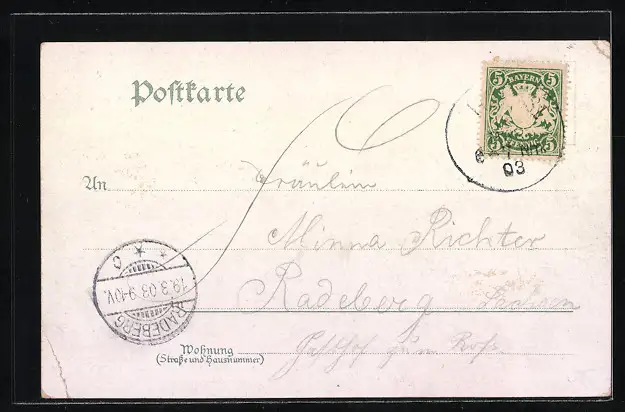 Postkarte
5 BAYERN 5
5 5
03
An Fräulein
Minna Richter
Radeberg Sachsen
19.3.03.9-10V.
RADEBERG
Wohnung
(Straße und Hausnummer)
Gasthof zum Roß